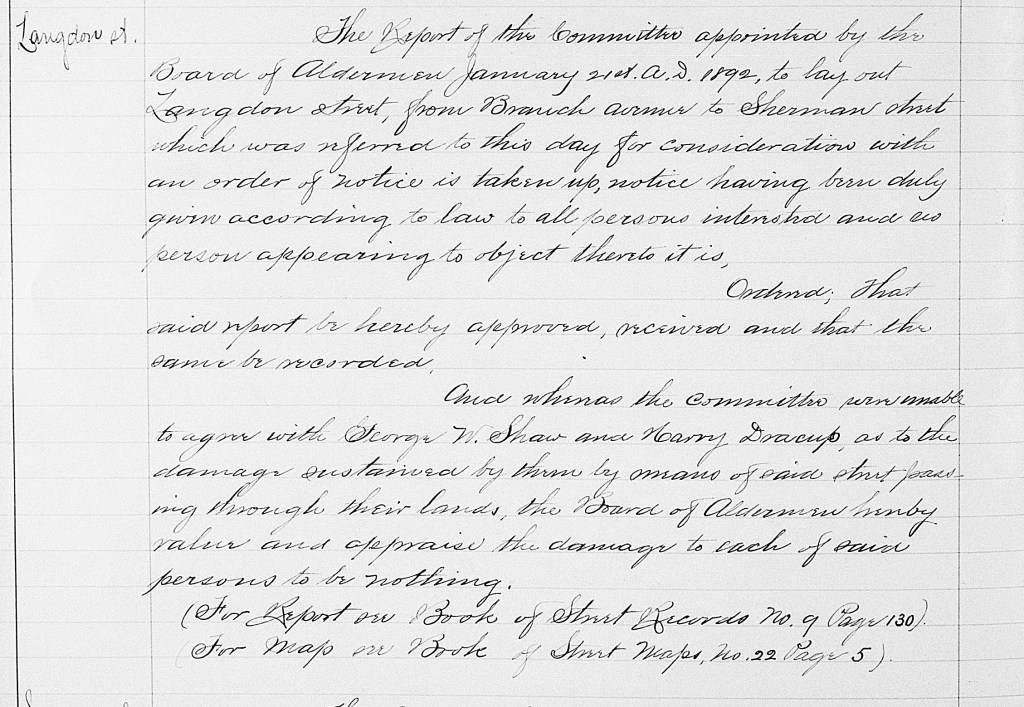 Langdon st.
The Report of the Committee appointed by the
Board of Aldermen January 21st. A.D. 1892, to lay out
Langdon street, from Branch avenue to Sherman street
which was referred to this day for consideration with
an order of notice is taken up, notice having been duly
given according to law to all persons interested and no
person appearing to object thereto it is,
Ordered; That
said report be hereby approved, received and that the
same be recorded.
And whereas the Committee were unable
to agree with George W. Shaw and Harry Dracup, as to the
damage sustained by them by means of said street pass-
ing through their lands, the Board of Aldermen hereby
value and appraise the damage to each of said
persons to be nothing.
(For Report see Book of Street Records No. 9 Page 130).
(For Map see Book of Street Maps, No. 22 Page 5).